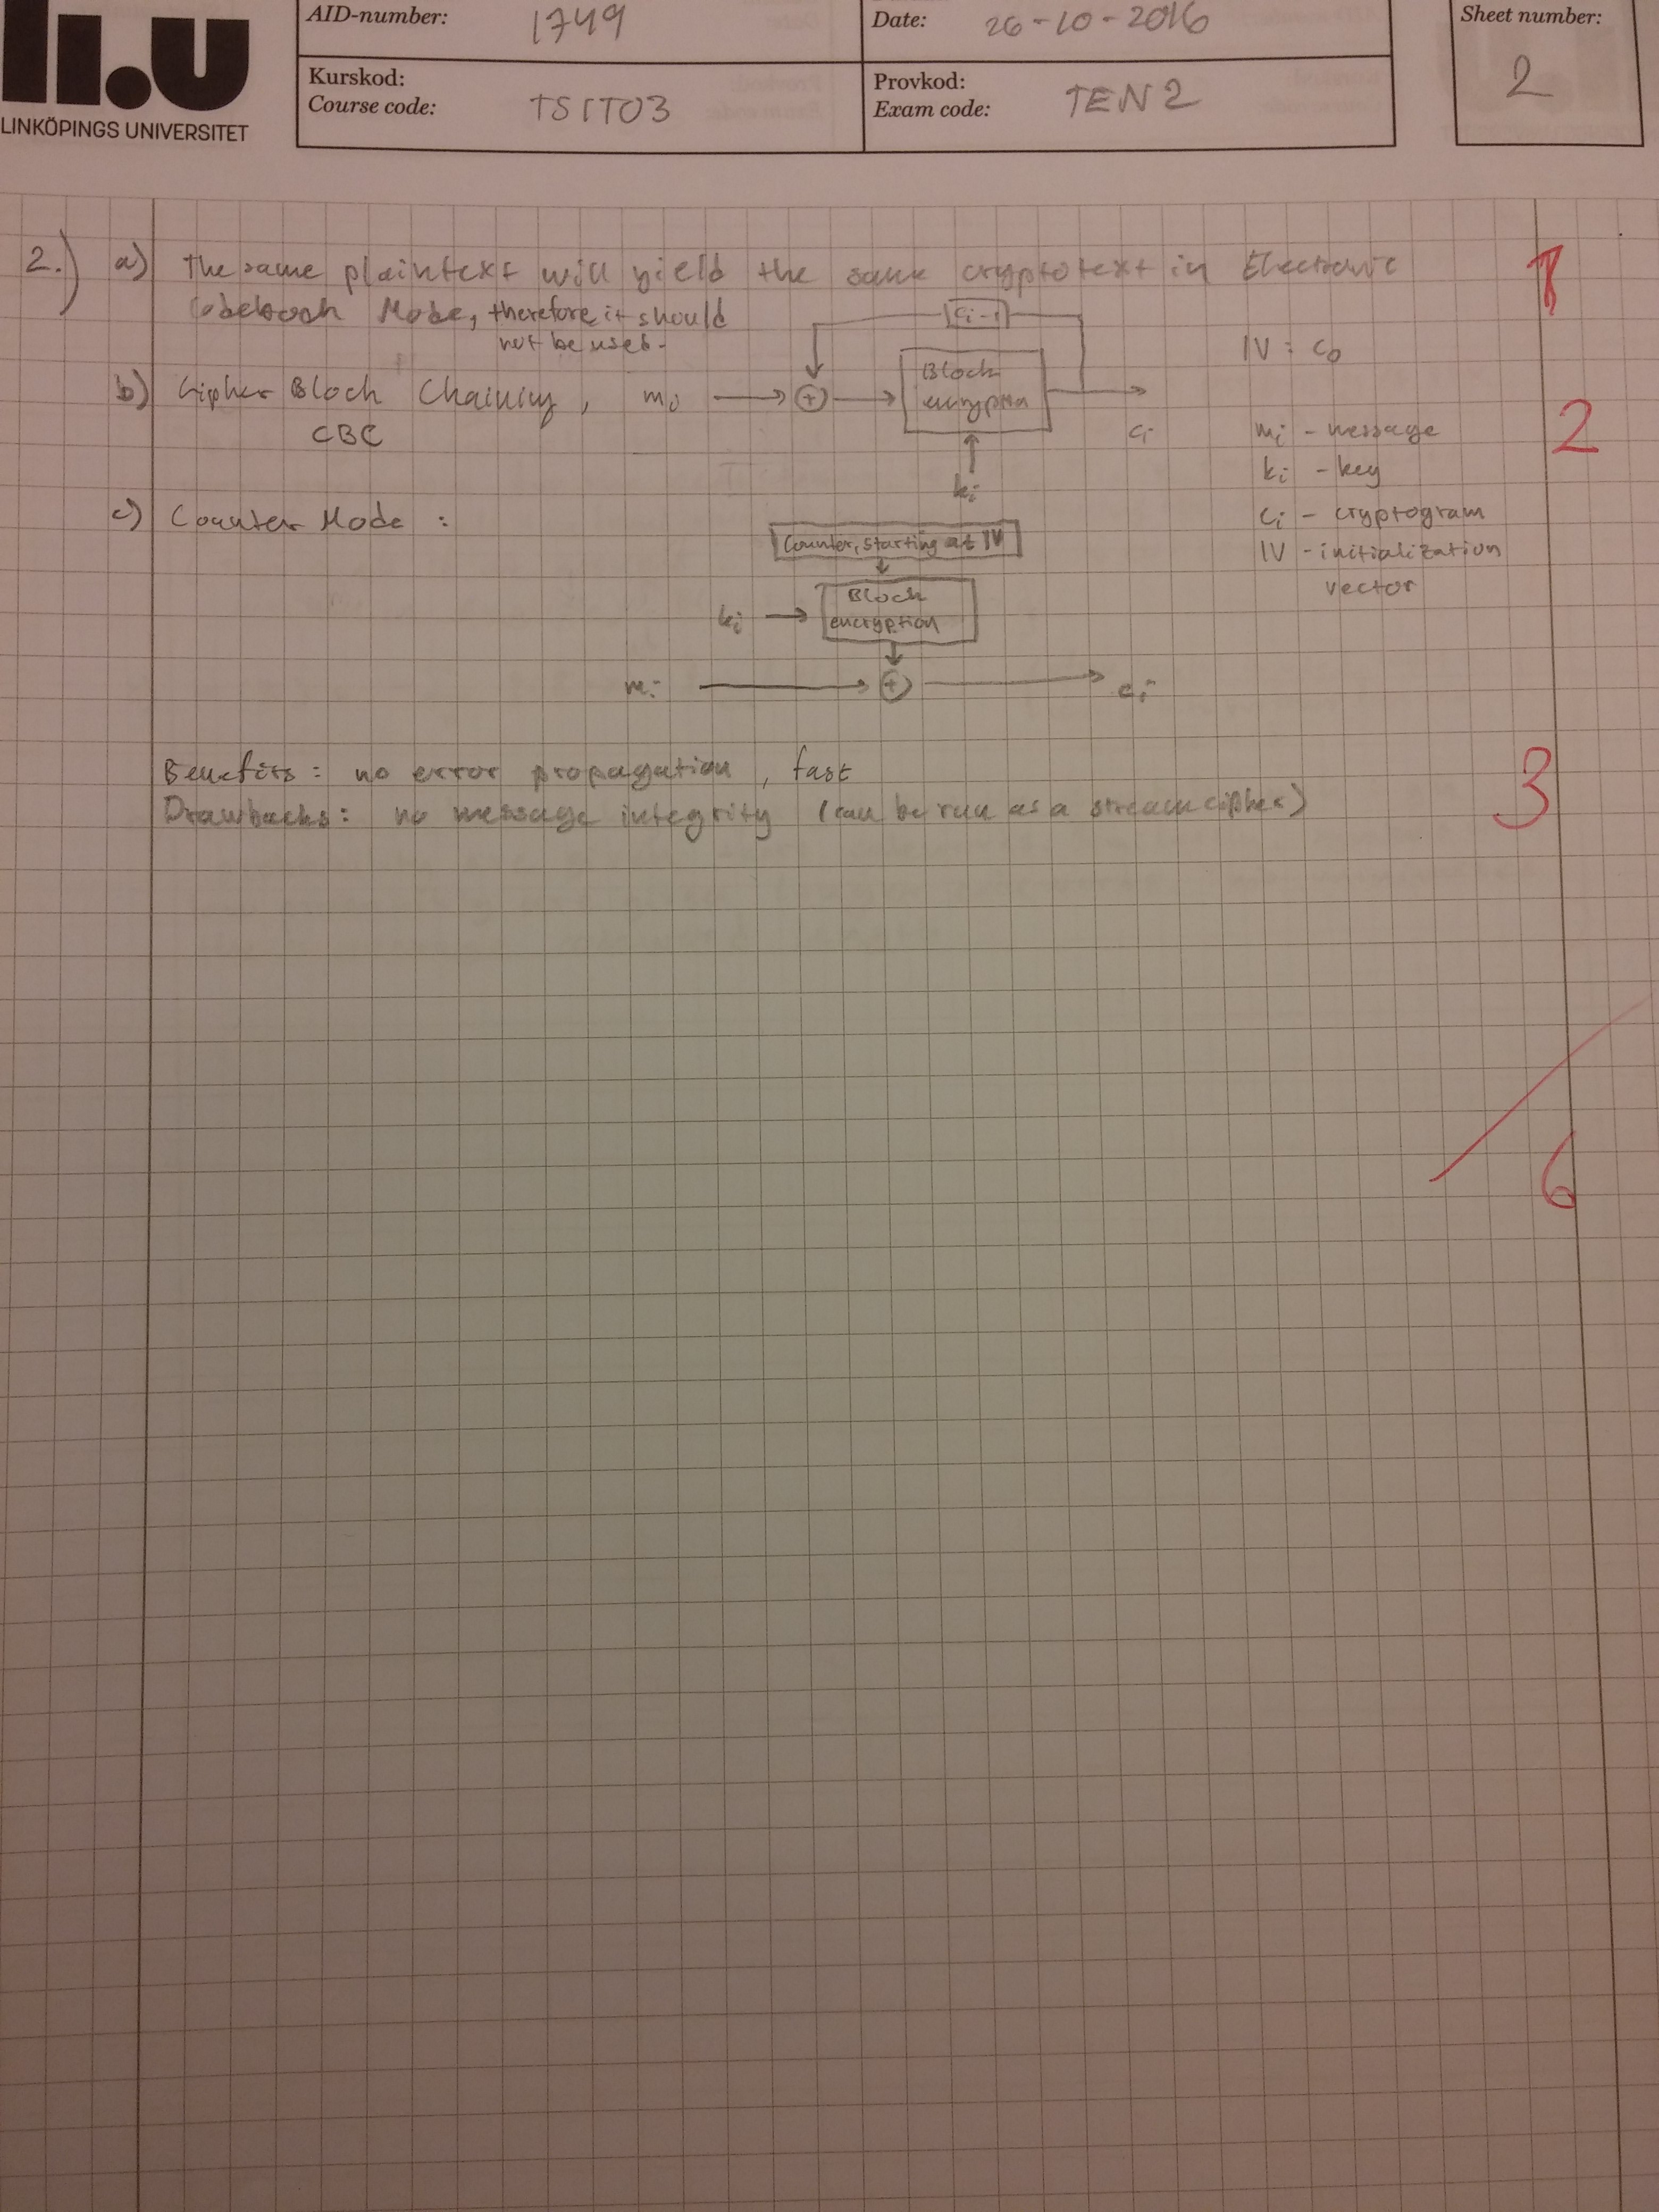 li.u
LINKÖPINGS UNIVERSITET
AID-number: 1749
Date: 26-10-2016
Sheet number:
2
Kurskod:
Course code: TSIT03
Provkod:
Exam code: TEN2
2.) a) The same plaintext will yield the same cryptotext in Electronic
Codebook Mode, therefore it should
not be used.
1
ci-1
IV = c0
b) Cipher Block Chaining, mi
CBC
Block
encryption
ci
ki
mi - message
ki - key
ci - cryptogram
IV - initialization
vector
2
c) Counter Mode :
Counter, starting at IV
Block
encryption
ki
mi
ci
Benefits: no error propagation, fast
Drawbacks: no message integrity (can be run as a stream cipher)
3
6